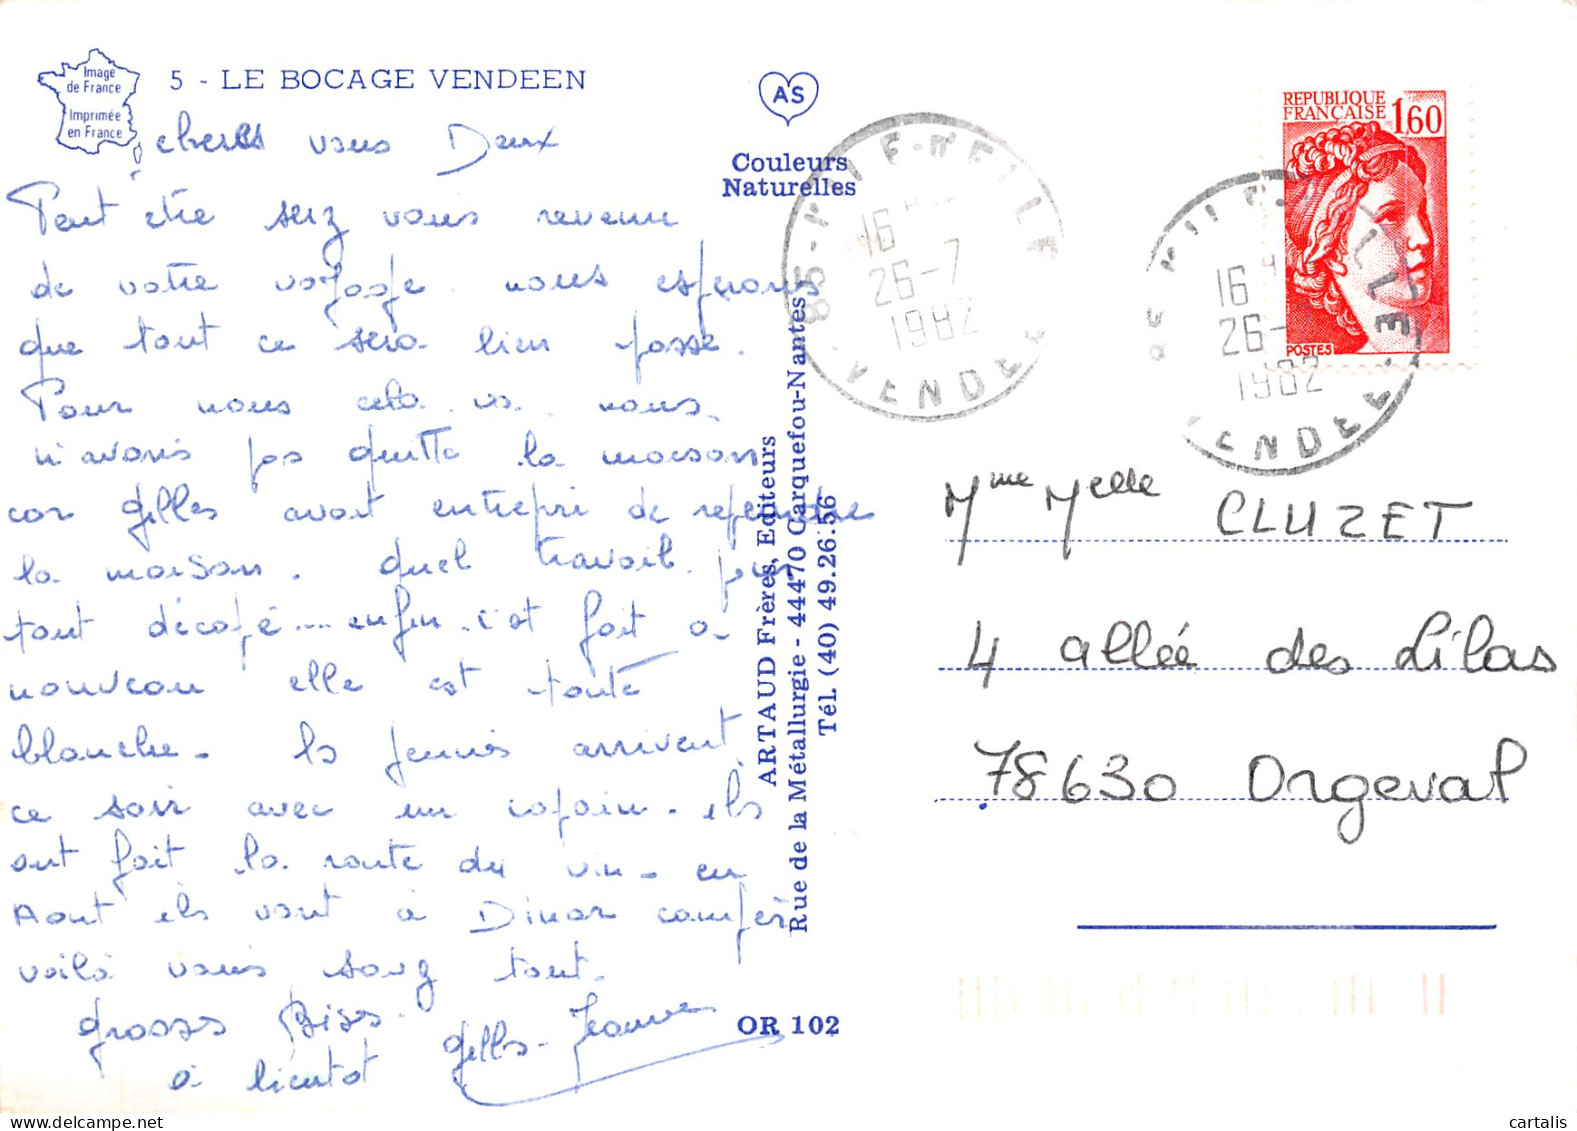 Image
de France
Imprimée
en France
5 - LE BOCAGE VENDEEN
cheres vous Deux
Peut être serz vous revenu
de votre voyage. nous esperons
que tout ce sera bien passé.
Pour nous cela va. nous
n'avons pas quitté la maison
car Gilles avait entrepri de repeindre
la maison. quel travail. pour
tout décapé.... enfin. c'est fait a
nouveau elle est toute
blanche. ls jeunes arrivent
ce soir avec un copain. ils
ont fait la route du vin. en
Aout ils vont à Dinar camper
voilà vous savez tout.
grosses Bises.
à bientot Gilles. Jeanne
AS
Couleurs
Naturelles
ARTAUD Frères, Editeurs
Rue de la Métallurgie - 44470 Carquefou-Nantes
Tél. (40) 49.26.56
OR 102
16 H
26-7
1982
VENDEE
REPUBLIQUE
FRANÇAISE 1,60
POSTES
16 H
26-
1982
VENDEE
Mme Melle CLUZET
4 allée des Lilas
78630 Orgeval
cartalis